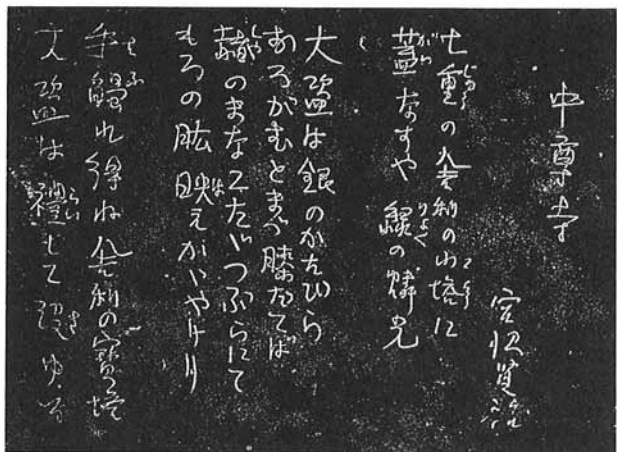 中尊寺
宮沢賢治
七重の舎利の小塔に
蓋なすや 緑の燐光
大盗は銀のかたびら
おろがむとまづ膝だてば
赭のまなこたゞつぶらにて
もろの肱映えかゞやけり
手觸れ得ね舎利の寶塔
大盗は禮して没ゆる